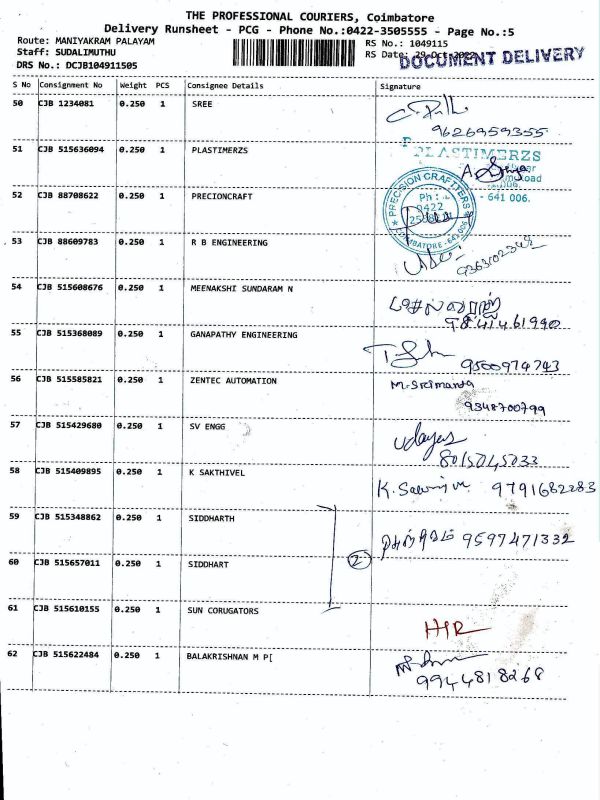 THE PROFESSIONAL COURIERS, Coimbatore
Delivery Runsheet - PCG - Phone No.:0422-3505555 - Page No.:5
Route: MANIYAKRAM PALAYAM
RS No.: 1049115
Staff: SUDALIMUTHU
RS Date: 29-Oct-2022
DOCUMENT DELIVERY
DRS No.: DCJB104911505
S No Consignment No Weight PCS Consignee Details Signature
50 CJB 1234081 0.250 1 SREE
9626959355
51 CJB 515636094 0.250 1 PLASTIMERZS
PLASTIMERZS
52 CJB 88708622 0.250 1 PRECIONCRAFT
PRECISION CRAFTTERS
Ph :
0422
COIMBATORE - 641 006
- 641 006.
53 CJB 88609783 0.250 1 R B ENGINEERING
9363102342
54 CJB 515608676 0.250 1 MEENAKSHI SUNDARAM N
9841461990
55 CJB 515368089 0.250 1 GANAPATHY ENGINEERING
9500974743
56 CJB 515585821 0.250 1 ZENTEC AUTOMATION
9348700799
57 CJB 515429680 0.250 1 SV ENGG
8015045033
58 CJB 515409895 0.250 1 K SAKTHIVEL
9791682283
59 CJB 515348862 0.250 1 SIDDHARTH
9597471332
60 CJB 515657011 0.250 1 SIDDHART
2
61 CJB 515610155 0.250 1 SUN CORUGATORS
62 CJB 515622484 0.250 1 BALAKRISHNAN M P[
9944818268